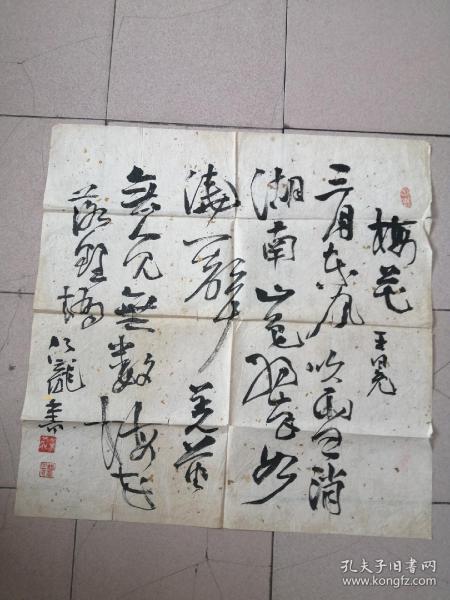 梅花 王冕
三月东风吹雪消
湖南山色翠如
浇一聲羌管
無人见無數梅花
落野橋 龍 書
孔夫子旧书网
www.kongfz.com